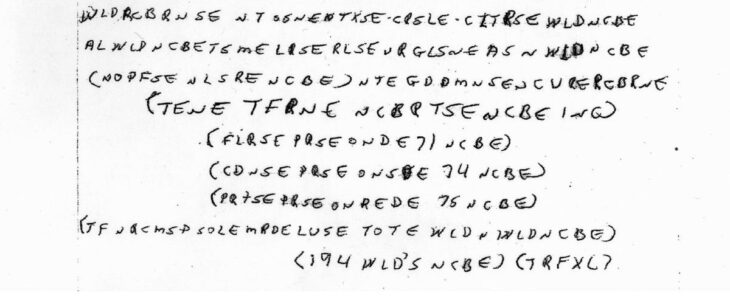 WLDRCBRNSE NTOSNEWTXSE-CRSLE-CITRSE WLDNCBE
ALWLDNCBETSMELRSERLSEURGLSNEASNWLDNCBE
(NOPFSE NLSRE NCBE) NTEGDDMNSENCURERCBRNE
(TENE TFRNE NCBRTSENCBEING)
(FLRSE PRSEONDE71 NCBE)
(CDNSE PRSEONSDE 74 NCBE)
(PRTSE PRSEONREDE 75 NCBE)
(TFNRCMSP SOLEMRDELUSE TOTE WLDN WLDNCBE)
(194 WLD'S NCBE) (TRFXL)